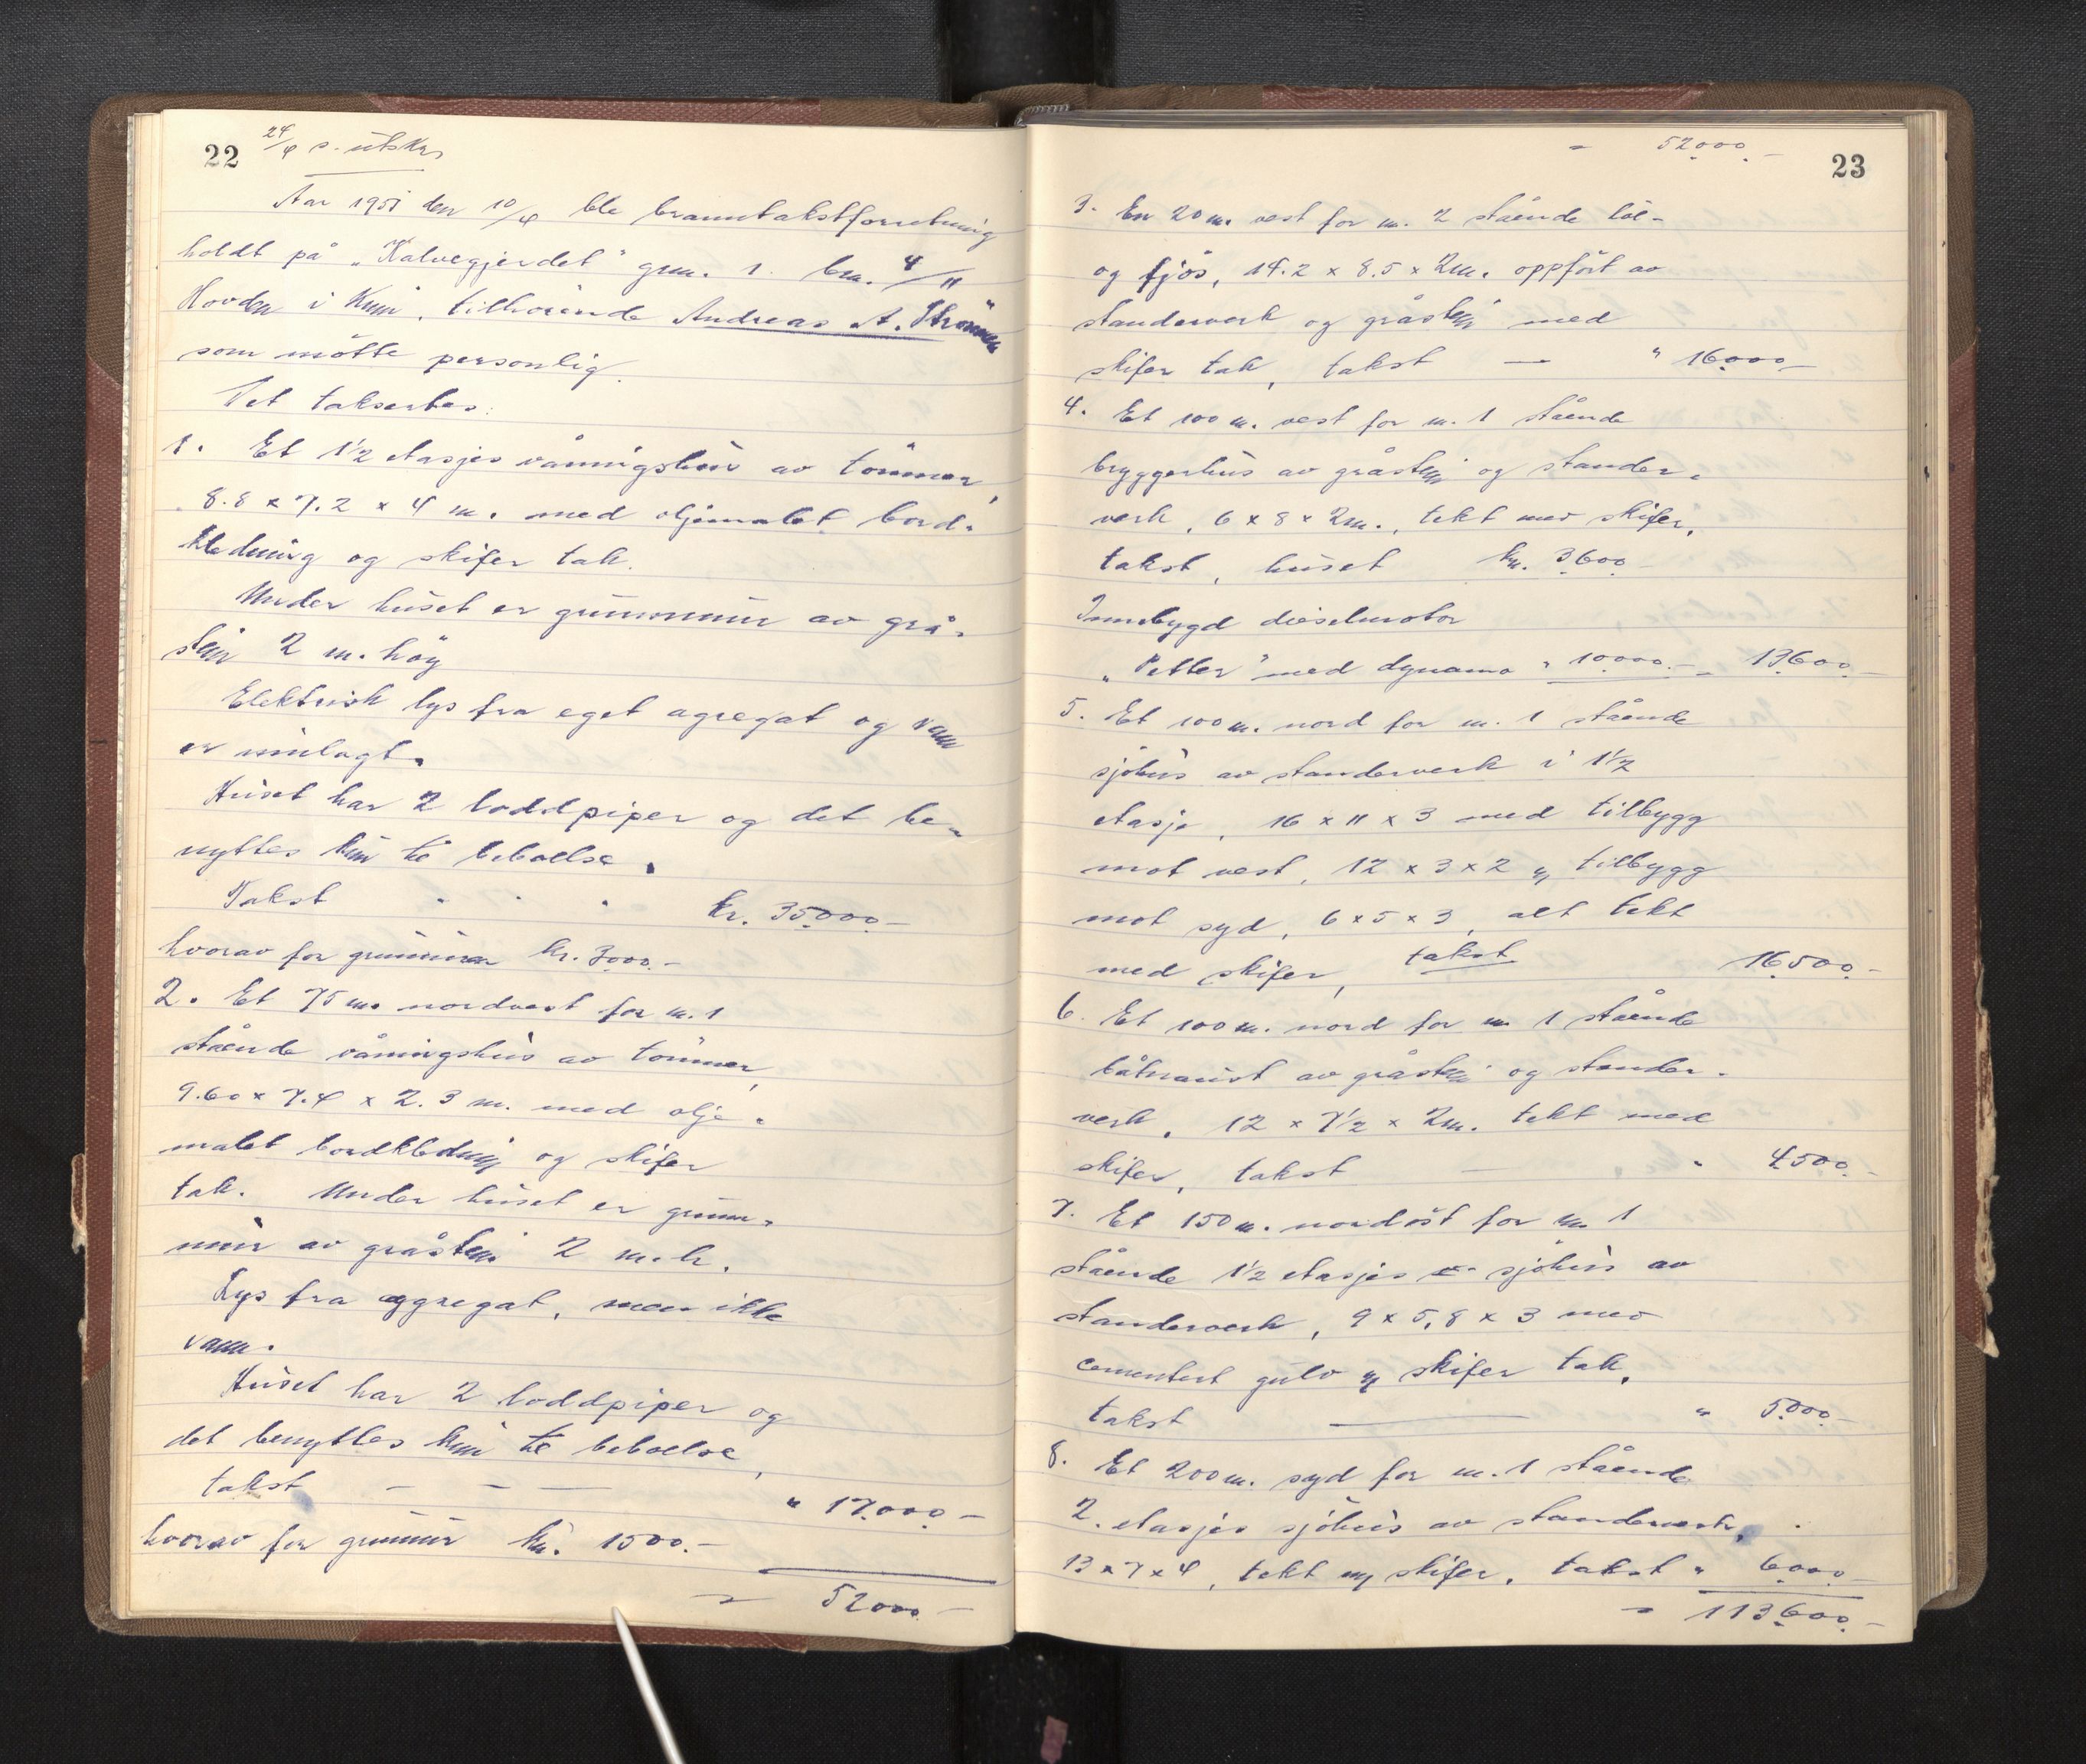 22
24/4 s. utskr.
Aar 1951 den 10/4 ble branntakstforretning
holdt på "Kalvegjerdet" gnr. 1. bnr. 4/11
Hovden i Kinn, tilhørende Andreas A. Strømmen
som møtte personlig.
Det taksertes:
1. Et 1½ etasjes våningshus av tømmer,
8.8 x 7.2 x 4 m. med oljemalet bord-
kledning og skifer tak.
Under huset er grunnmur av grå-
stein 2 m. høy
Elektrisk lys fra eget agregat og vann
er innlagt.
Huset har 2 loddpiper og det be-
nyttes kun til beboelse.
Takst " " " kr. 35000.-
hvorav for grunmur kr. 3000.-
2. Et 75 m. nordvest for nr. 1
stående våningshus av tømmer,
9.60 x 7.4 x 2.3 m. med olje-
malet bordkledning og skifer
tak. Under huset er grunn-
mur av gråstein 2 m. h.
Lys fra aggregat, men ikke
vann.
Huset har 2 loddpiper og
det benyttes kun til beboelse,
takst — — — " 17.000.-
hvorav for grunmur kr. 1500.-
= 52000.-
= 52000.-
23
3. En 20 m. vest for nr. 2 stående løe-
og fjøs, 14.2 x 8.5 x 2 m. oppført av
standerverk og gråstein med
skifer tak, takst — " 16000.-
4. Et 100 m. vest for nr. 1 stående
bryggerhus av gråstein og stander-
verk, 6 x 8 x 2 m., tekt med skifer,
takst, huset kr. 3600.-
Innebygd dieselmotor
"Petter" med dynamo " 10000.- = 13600.-
5. Et 100 m. nord for nr. 1 stående
sjøhus av standerverk i 1½
etasje, 16 x 11 x 3 med tilbygg
mot vest, 12 x 3 x 2 og tilbygg
mot syd, 6 x 5 x 3, alt tekt
med skifer, takst 16500.-
6. Et 100 m. nord for nr. 1 stående
båtnaust av gråstein og stander-
verk, 12 x 7½ x 2 m. tekt med
skifer, takst — " 4500.-
7. Et 150 m. nordøst for nr. 1
stående 1½ etasjes sjøhus av
standerverk, 9 x 5,8 x 3 med
cementert gulv og skifer tak,
takst — " 5000.-
8. Et 200 m. syd for nr. 1 stående
2. etasjes sjøhus av standerverk,
13 x 7 x 4, tekt m/ skifer, takst " 6000.-
= 113600.-